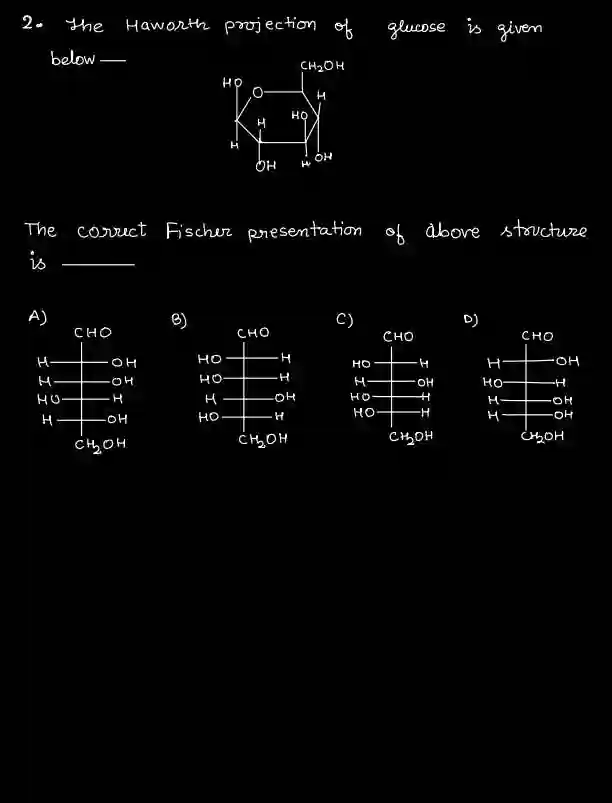 2. The Haworth projection of glucose is given
below —
CH₂OH
HO
O
H
H
HO
H
OH
H
OH
The correct Fischer presentation of above structure
is ———
A)
B)
C)
D)
CHO
CHO
CHO
CHO
H OH
HO H
HO H
H OH
H OH
HO H
H OH
HO H
HO H
H OH
HO H
H OH
H OH
HO H
HO H
H OH
CH₂OH
CH₂OH
CH₂OH
CH₂OH